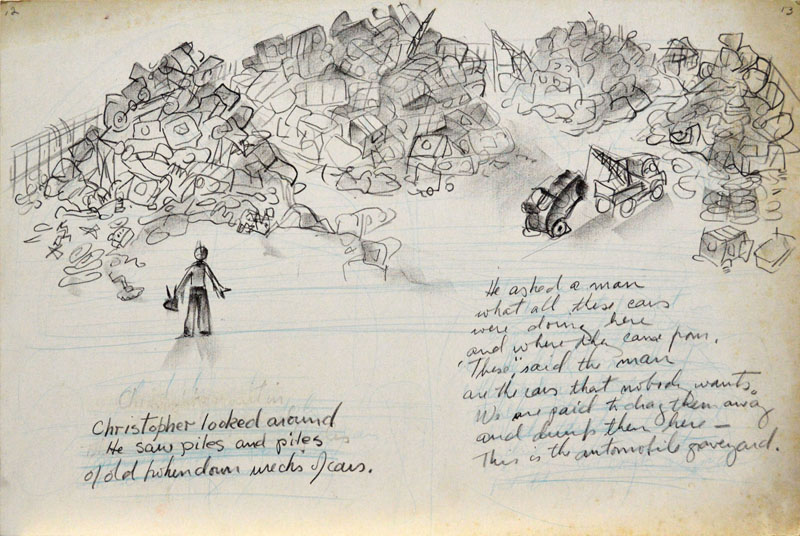 12
13
Christopher looked around
He saw piles and piles
of old brokendown wrecks of cars.
He asked a man
what all these cars
were doing here
and where they came from.
"These" said the man
are the cars that nobody wants.
We are paid to drag them away
and dump them here —
This is the automobile graveyard.